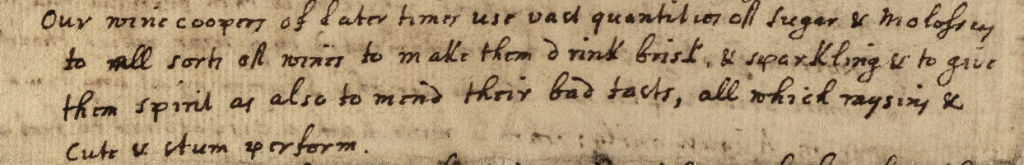 Our wine coopers of later times use vast quantities of Sugar & Molosses
to all sorts of wines to make them drink brisk, & sparkling & to give
them spirit as also to mend their bad tasts, all which raysins &
Cute & stum perform.